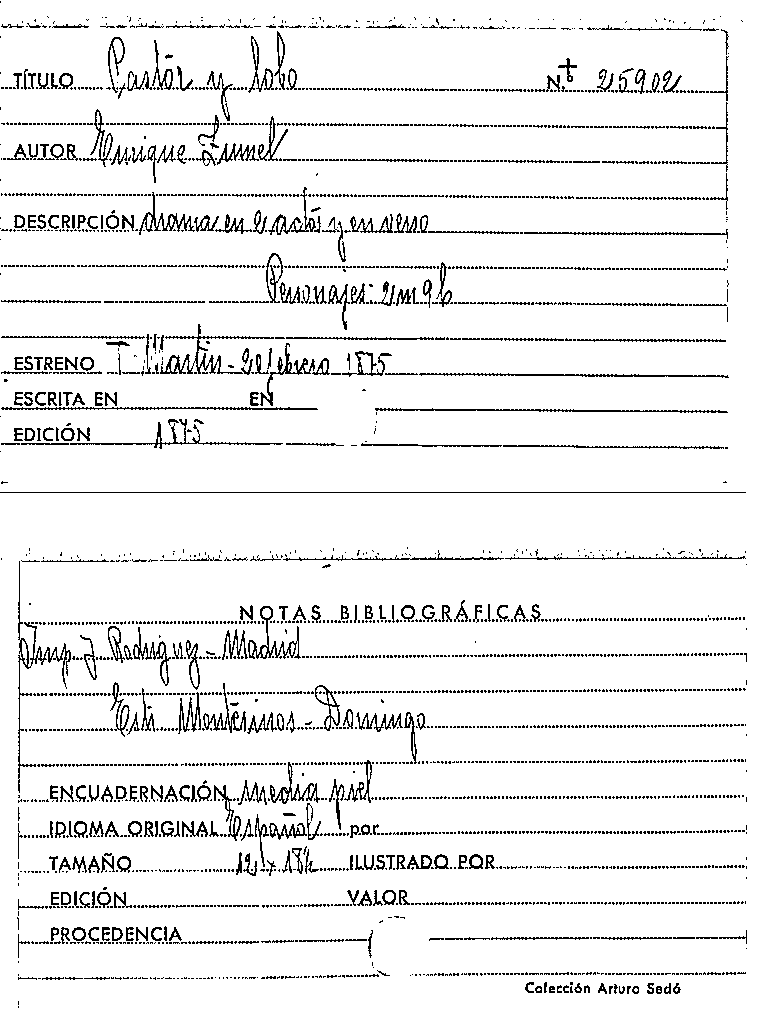 TÍTULO Pastór y lobo N.º 25902
AUTOR Enrique Zumel
DESCRIPCIÓN drama en 2 actos y en verso
Personajes: 2 m 9 h
ESTRENO T. Martin - 20 febrero 1875
ESCRITA EN EN
EDICIÓN 1875
NOTAS BIBLIOGRÁFICAS
Imp. J Rodriguez - Madrid
Montesinos - Domingo
ENCUADERNACIÓN media piel
IDIOMA ORIGINAL Español por
TAMAÑO 12 x 18½ ILUSTRADO POR
EDICIÓN VALOR
PROCEDENCIA
Colección Arturo Sedó